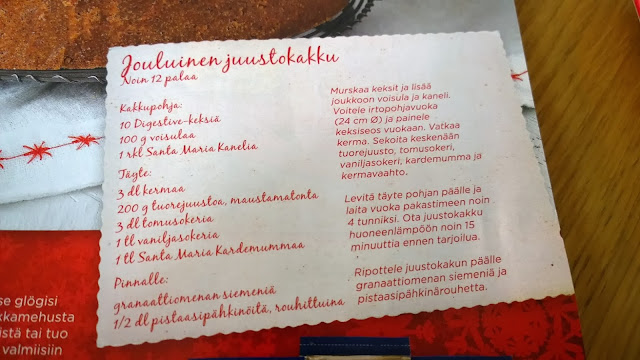 Jouluinen juustokakku
Noin 12 palaa
Kakkupohja:
10 Digestive-keksiä
100 g voisulaa
1 rkl Santa Maria Kanelia
Täyte:
3 dl kermaa
200 g tuorejuustoa, maustamatonta
3 dl tomusokeria
1 tl vaniljasokeria
1 tl Santa Maria Kardemummaa
Pinnalle:
granaattiomenan siemeniä
1/2 dl pistaasipähkinöitä, rouhittuina
Murskaa keksit ja lisää
joukkoon voisula ja kaneli.
Voitele irtopohjavuoka
(24 cm Ø) ja painele
keksiseos vuokaan. Vatkaa
kerma. Sekoita keskenään
tuorejuusto, tomusokeri,
vaniljasokeri, kardemumma ja
kermavaahto.
Levitä täyte pohjan päälle ja
laita vuoka pakastimeen noin
4 tunniksi. Ota juustokakku
huoneenlämpöön noin 15
minuuttia ennen tarjoilua.
Ripottele juustokakun päälle
granaattiomenan siemeniä ja
pistaasipähkinärouhetta.
se glögisi
kkamehusta
istä tai tuo
valmiisiin